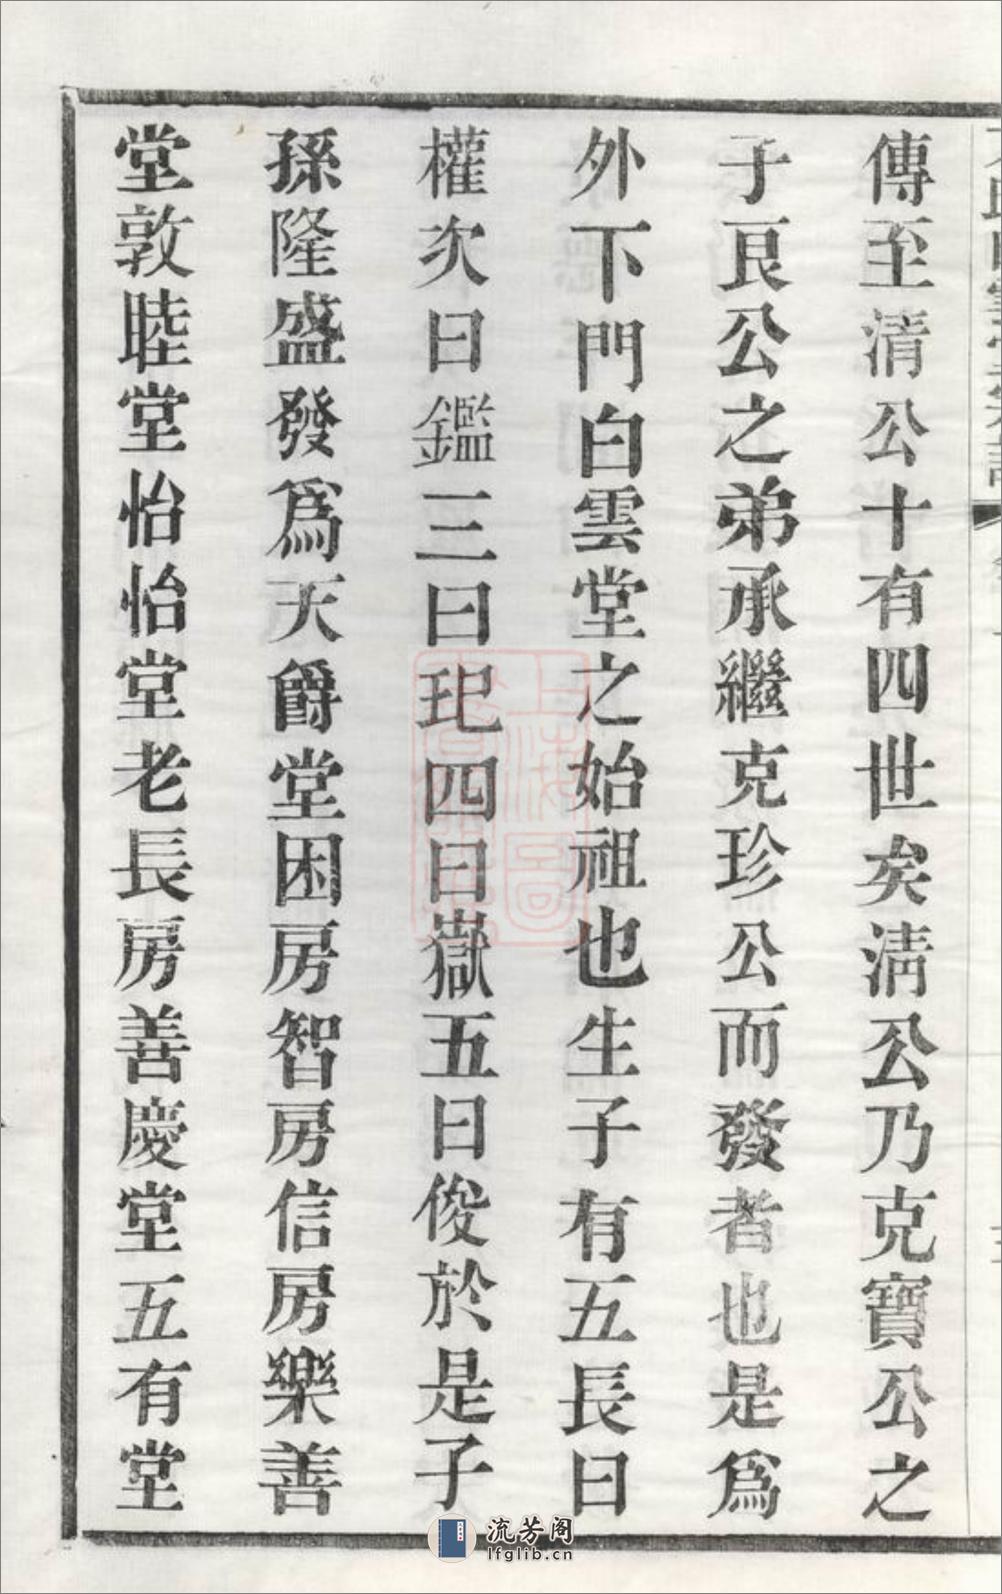 傳至清公十有四世矣清公乃克寶公之
子良公之弟承繼克珍公而發者也是為
外下門白雲堂之始祖也生子有五長曰
權次曰鑑三曰玘四曰嶽五曰俊於是子
孫隆盛發為天爵堂困房智房信房樂善
堂敦睦堂怡怡堂老長房善慶堂五有堂
流芳阁
lfglib.cn